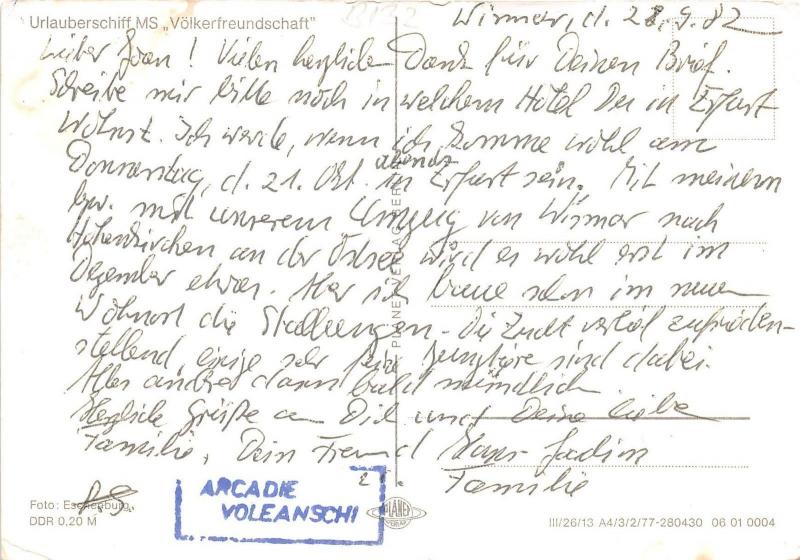 Urlauberschiff MS „Völkerfreundschaft"
B132
Wismar, d. 28.9.82
Lieber Joan! Vielen herzlichen Dank für Deinen Brief.
Schreibe mir bitte noch in welchem Hotel Du in Erfurt
Wohnst. Ich werde, wenn ich komme wohl am
Donnerstag, d. 21. Okt. abends in Erfurt sein. Mit meinem
bzw. mit unserem Umzug von Wismar nach
Hohenkirchen an der Ostsee wird es wohl erst im
Dezember etwas. Aber ich baue schon im neuen
Wohnort die Stallungen. Die Zucht verlief zufrieden-
stellend einige sehr feine Jungtiere sind dabei.
Alles andere dann bald mündlich
Herzliche Grüße an Dich und Deine liebe
Familie, Dein Freund Hans
Familie
P.S.
ARCADIE
VOLEANSCHI
PLANET
Foto: Eschenburg
DDR 0,20 M
III/26/13 A4/3/2/77-280430 06 01 0004